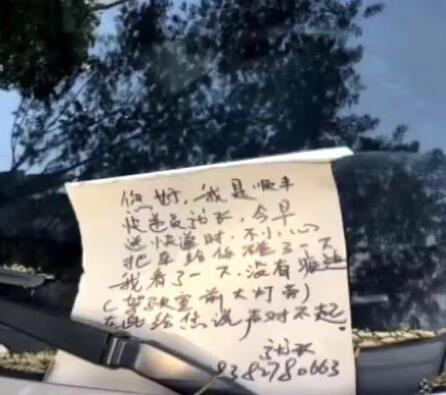 您好,我是顺丰
快递员 今早
送快递时,不小心
把车给你碰了一下
我看了一下,没有
(驾驶室前大灯前)
在此给您说声对不起。